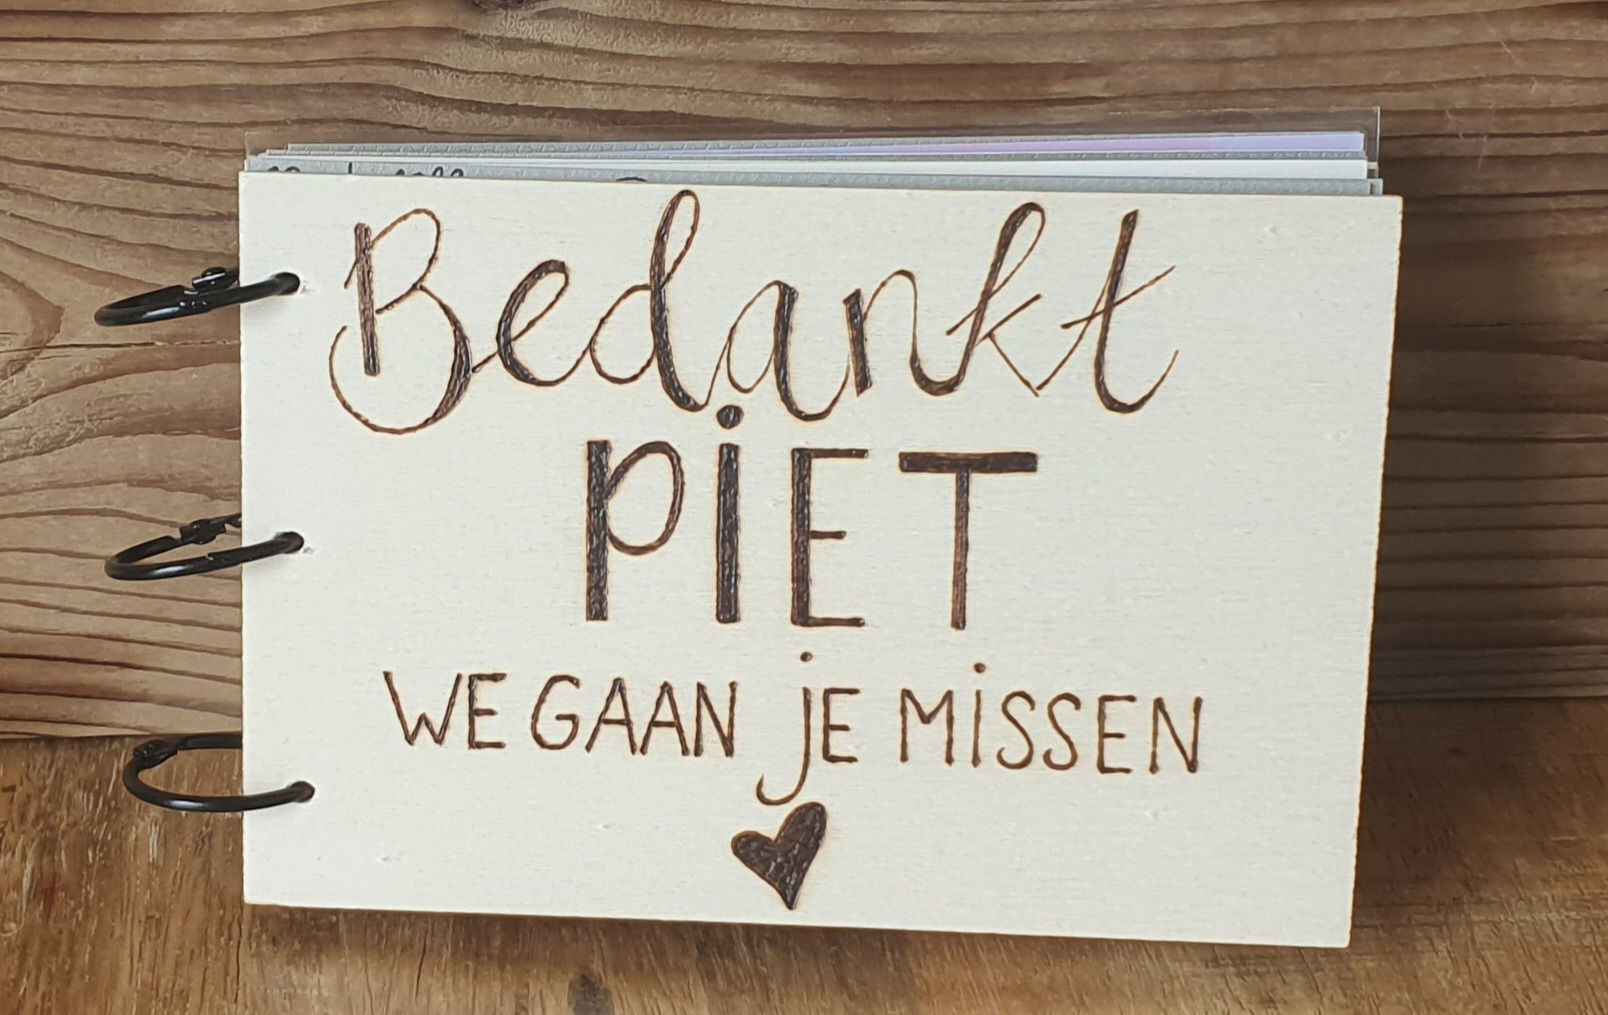 Bedankt
PiET
WE GAAN jE MiSSEN